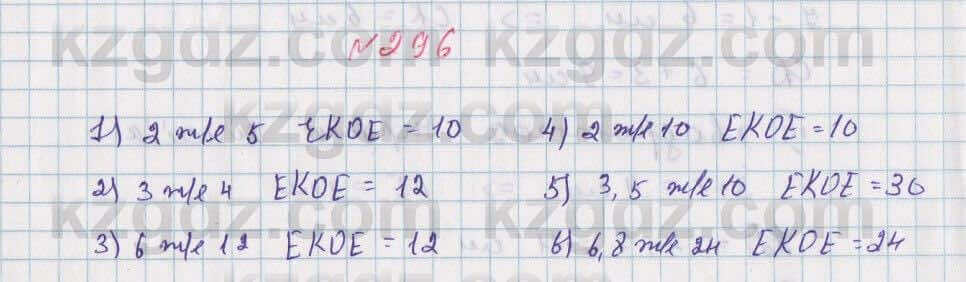 №296
1) 2 және 5 ЕКОЕ = 10
2) 3 және 4 ЕКОЕ = 12
3) 6 және 12 ЕКОЕ = 12
4) 2 және 10 ЕКОЕ = 10
5) 3, 5 және 10 ЕКОЕ = 30
6) 6, 8 және 24 ЕКОЕ = 24
kzgdz.com